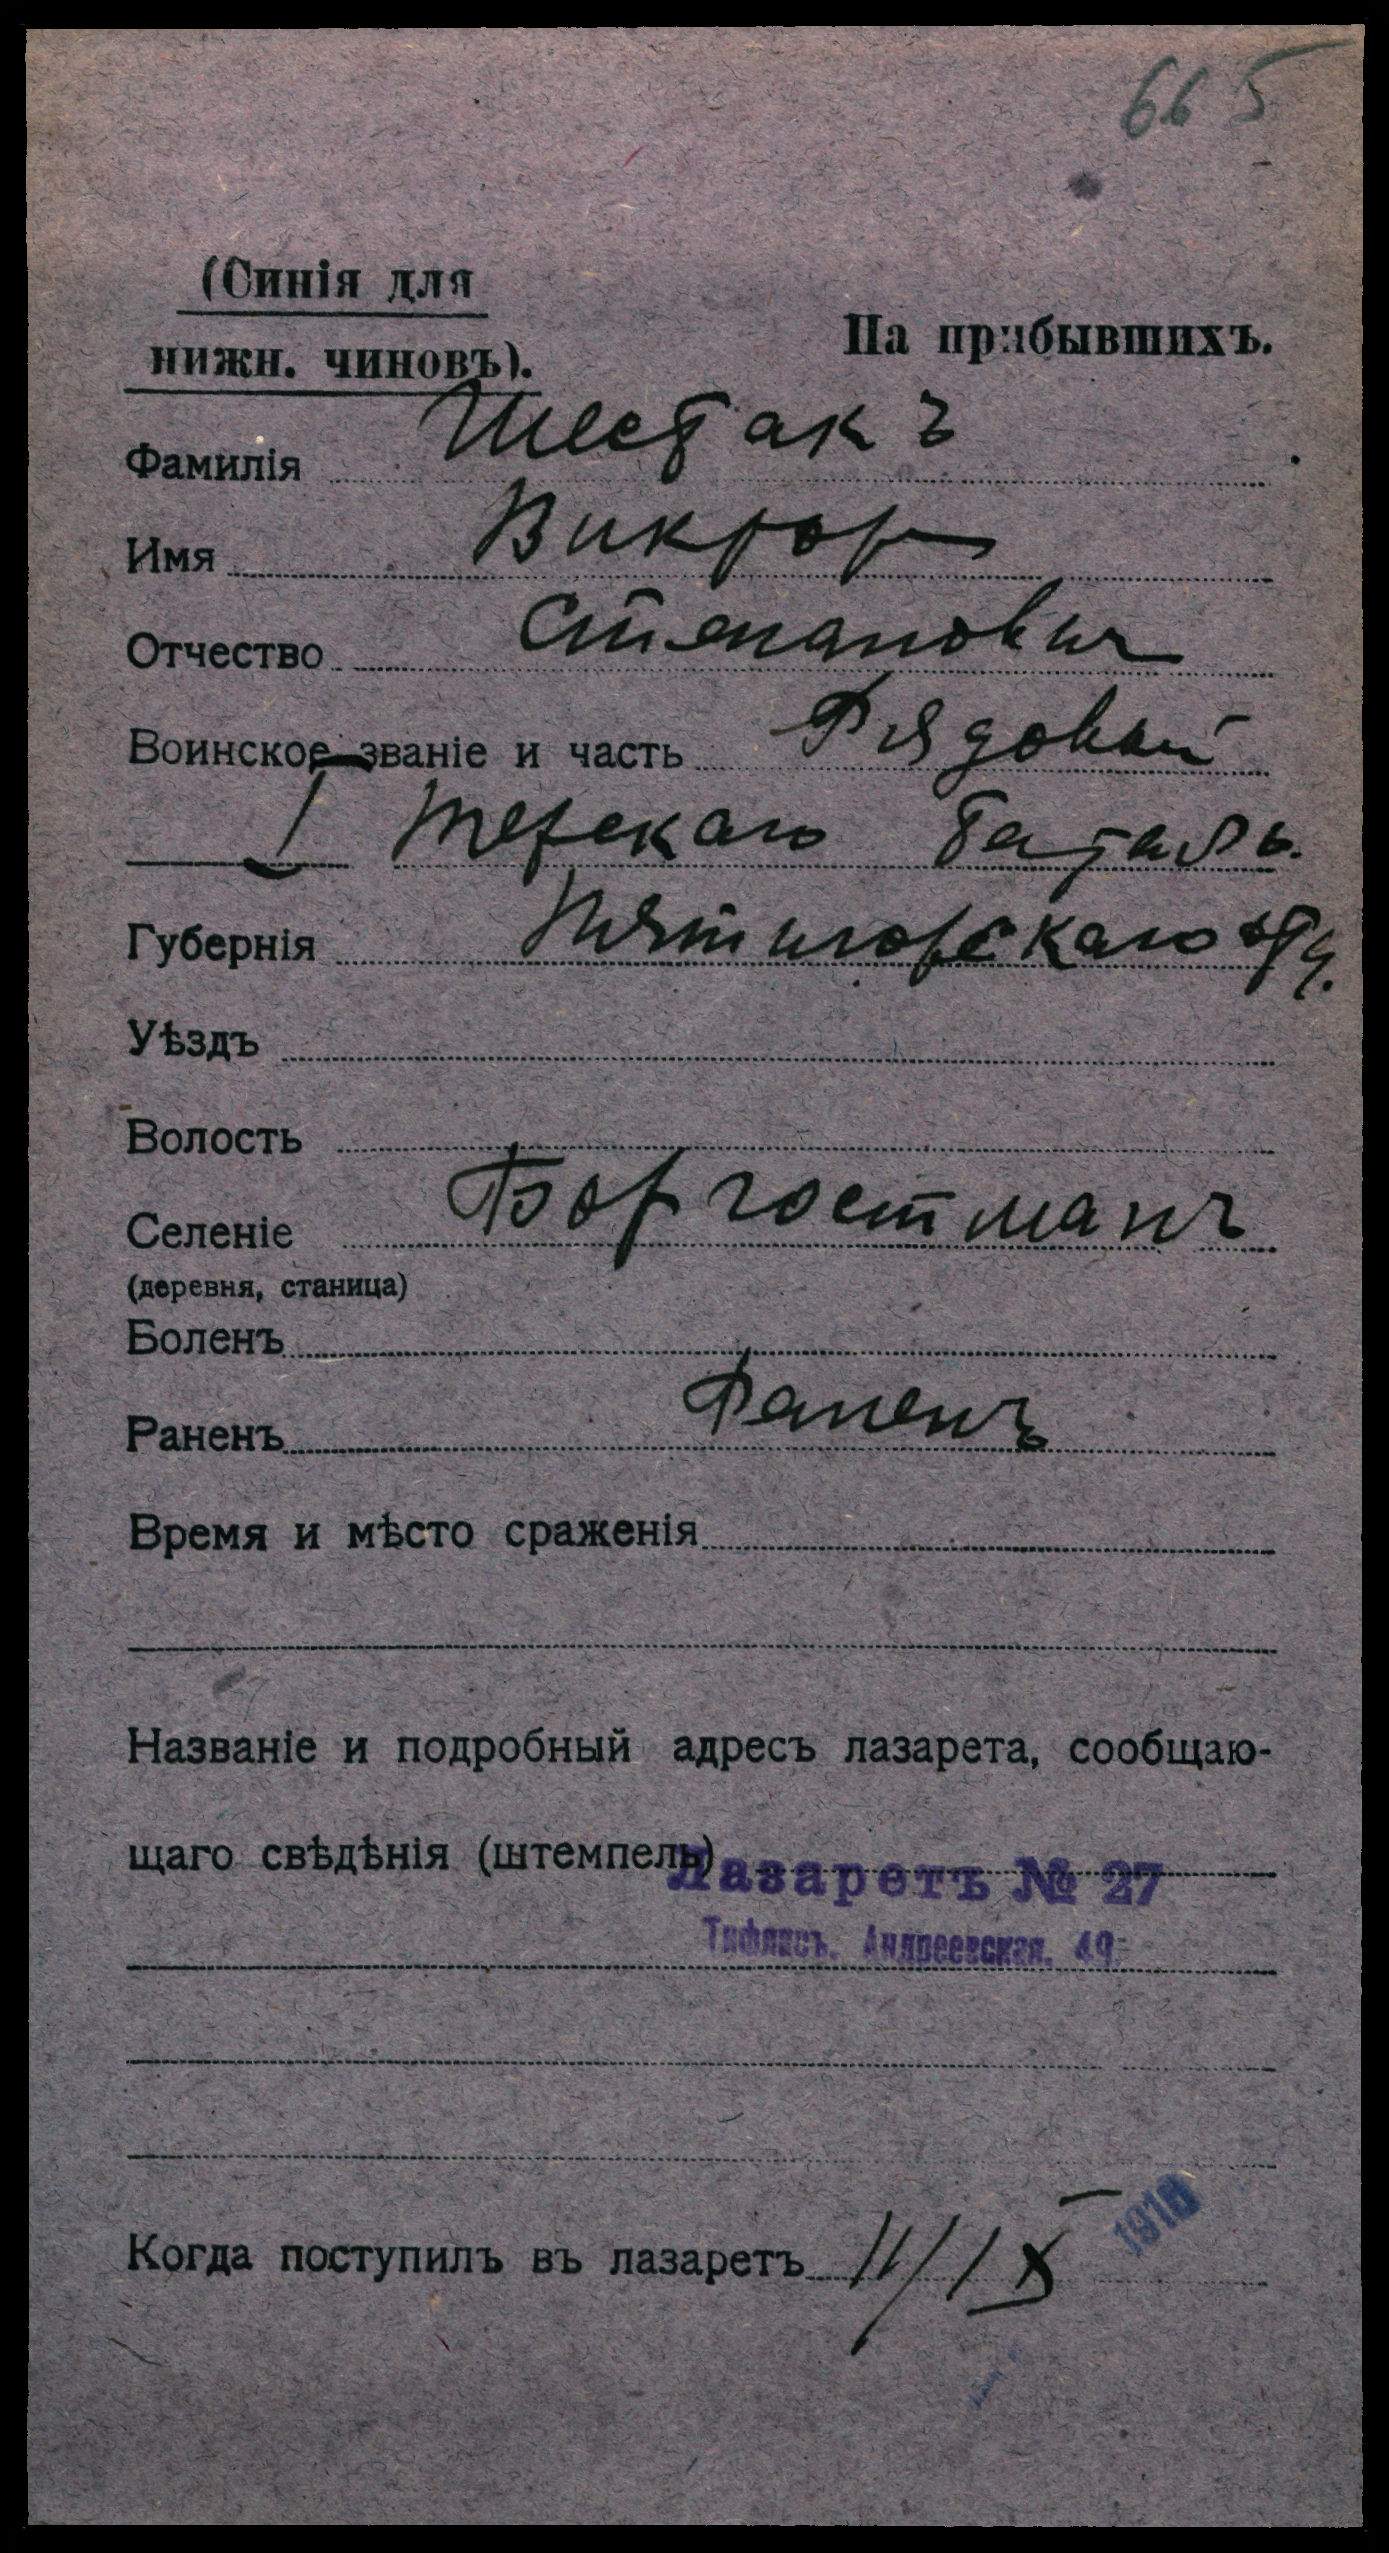 665
(Синія для
нижн. чиновъ).
На прибывшихъ.
Фамилія Шестакъ
Имя Виктор
Отчество Степанович
Воинское званіе и часть Рядовый
I Терскаго баталь.
Губернія Пятигорскаго отд.
Уѣздъ
Волость
Селеніе Боргостманъ
(деревня, станица)
Боленъ
Раненъ Раненъ
Время и мѣсто сраженія
Названіе и подробный адресъ лазарета, сообщаю-
щаго свѣдѣнія (штемпель)
Лазаретъ № 27
Тифлисъ. Андреевская. 49.
Когда поступилъ въ лазаретъ 11/IX 1916